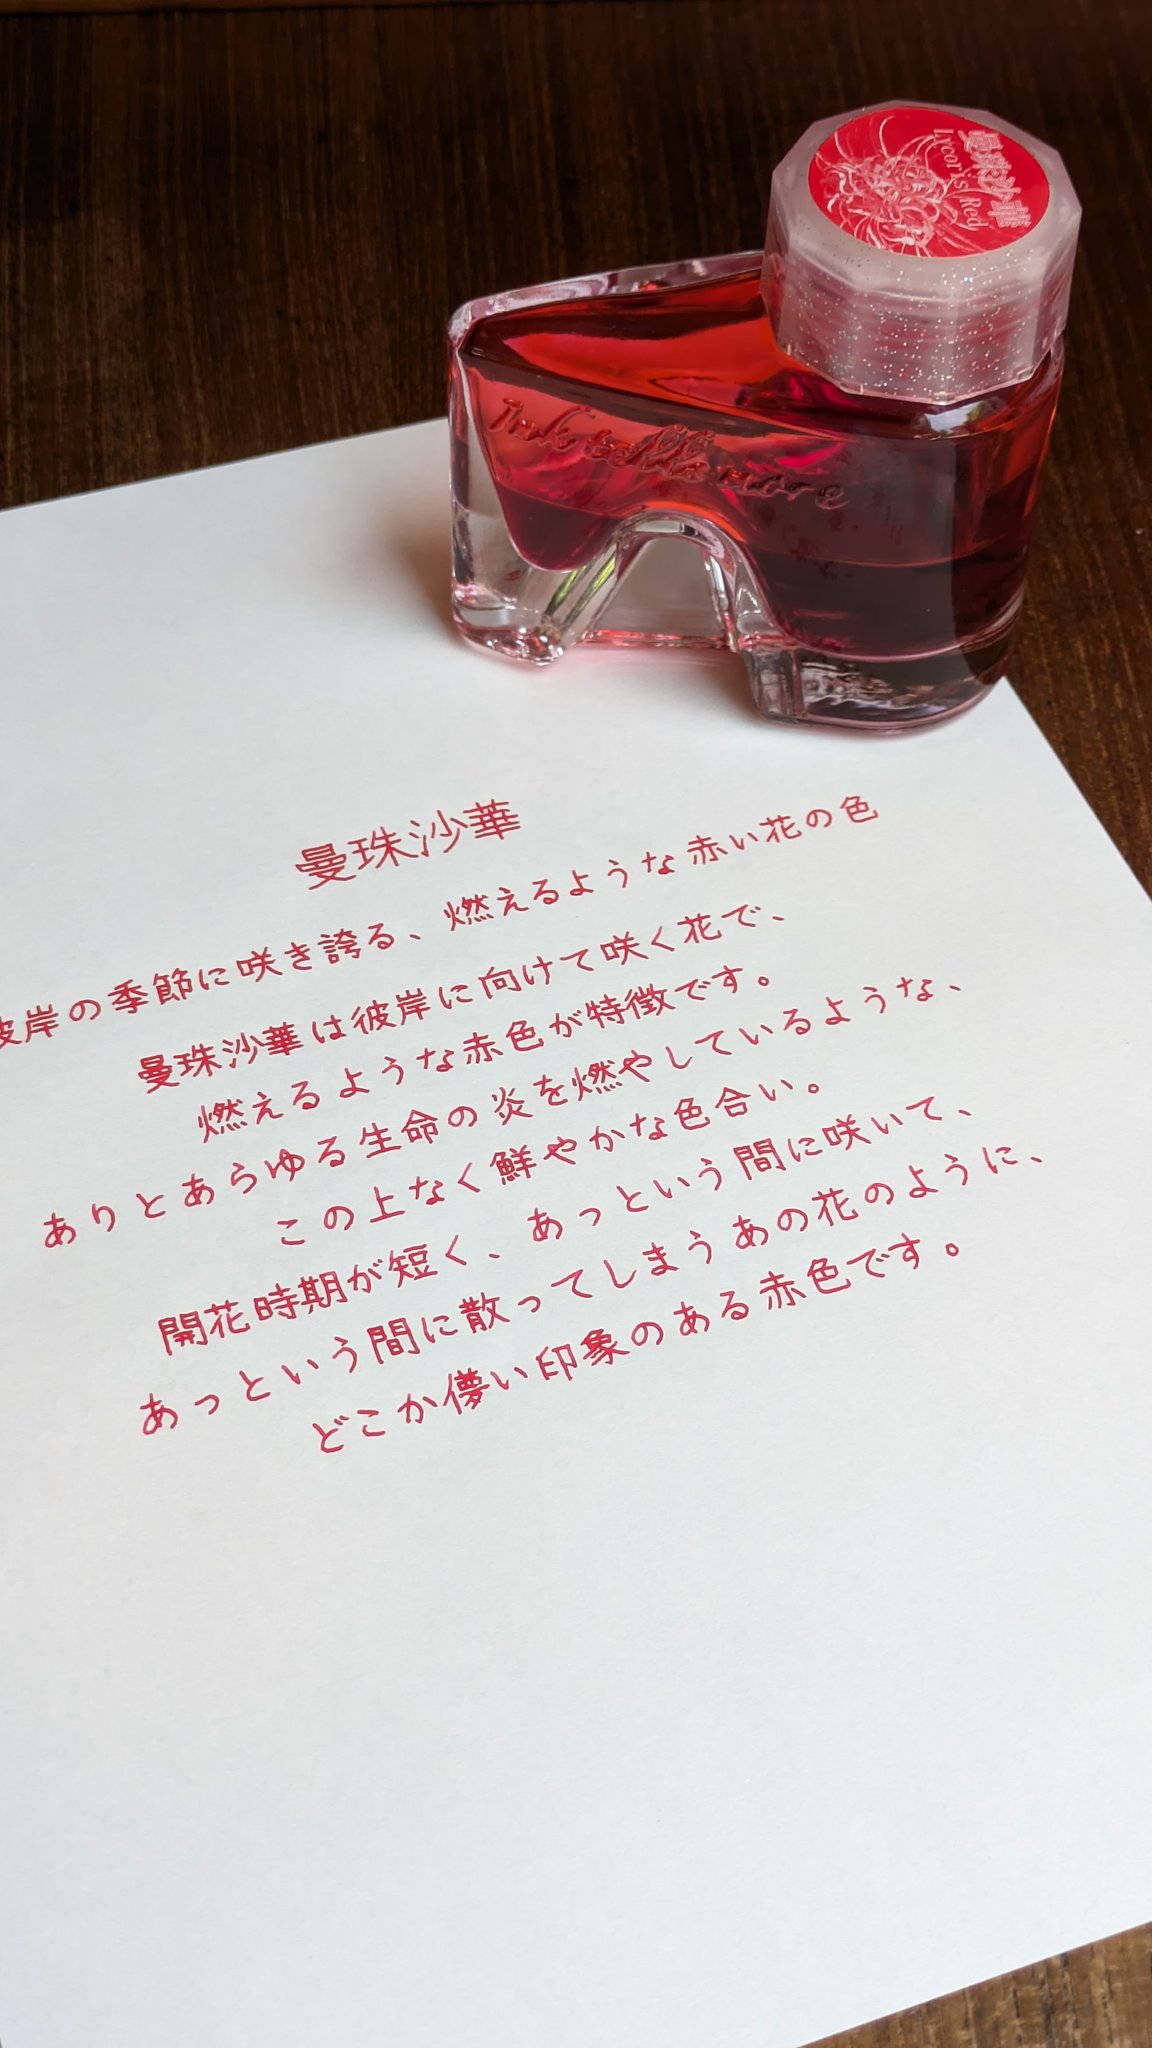 曼珠沙華
Lycoris Red
Ink tells more
曼珠沙華
彼岸の季節に咲き誇る、燃えるような赤い花の色
曼珠沙華は彼岸に向けて咲く花で、
燃えるような赤色が特徴です。
ありとあらゆる生命の炎を燃やしているような、
この上なく鮮やかな色合い。
開花時期が短く、あっという間に咲いて、
あっという間に散ってしまうあの花のように、
どこか儚い印象のある赤色です。